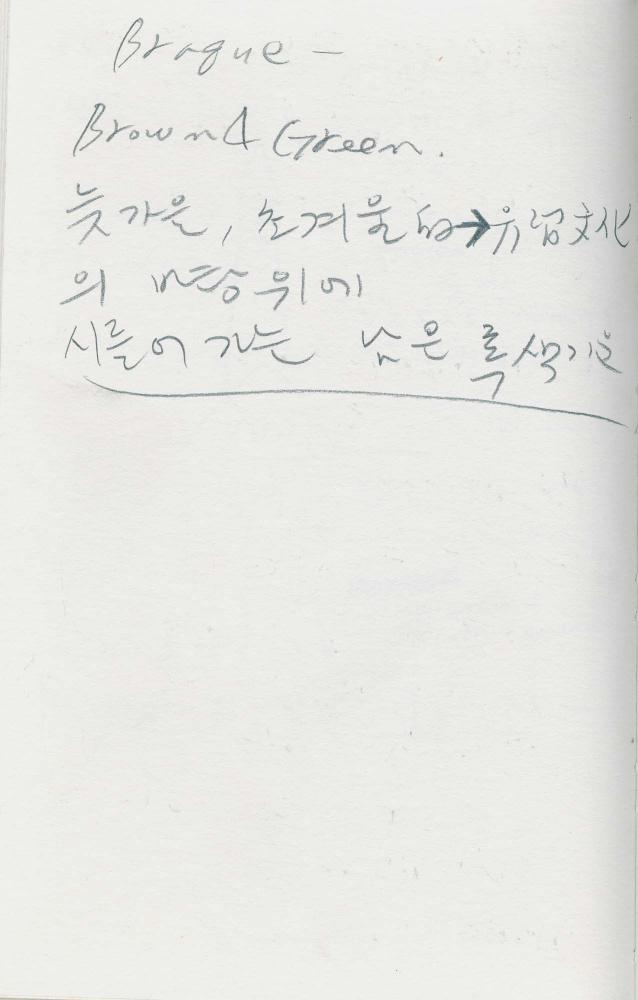 Braque –
Brown & Green.
늦가을, 초겨울的→유럽文化
의 명상 위에
시들어 가는 남은 록색기운